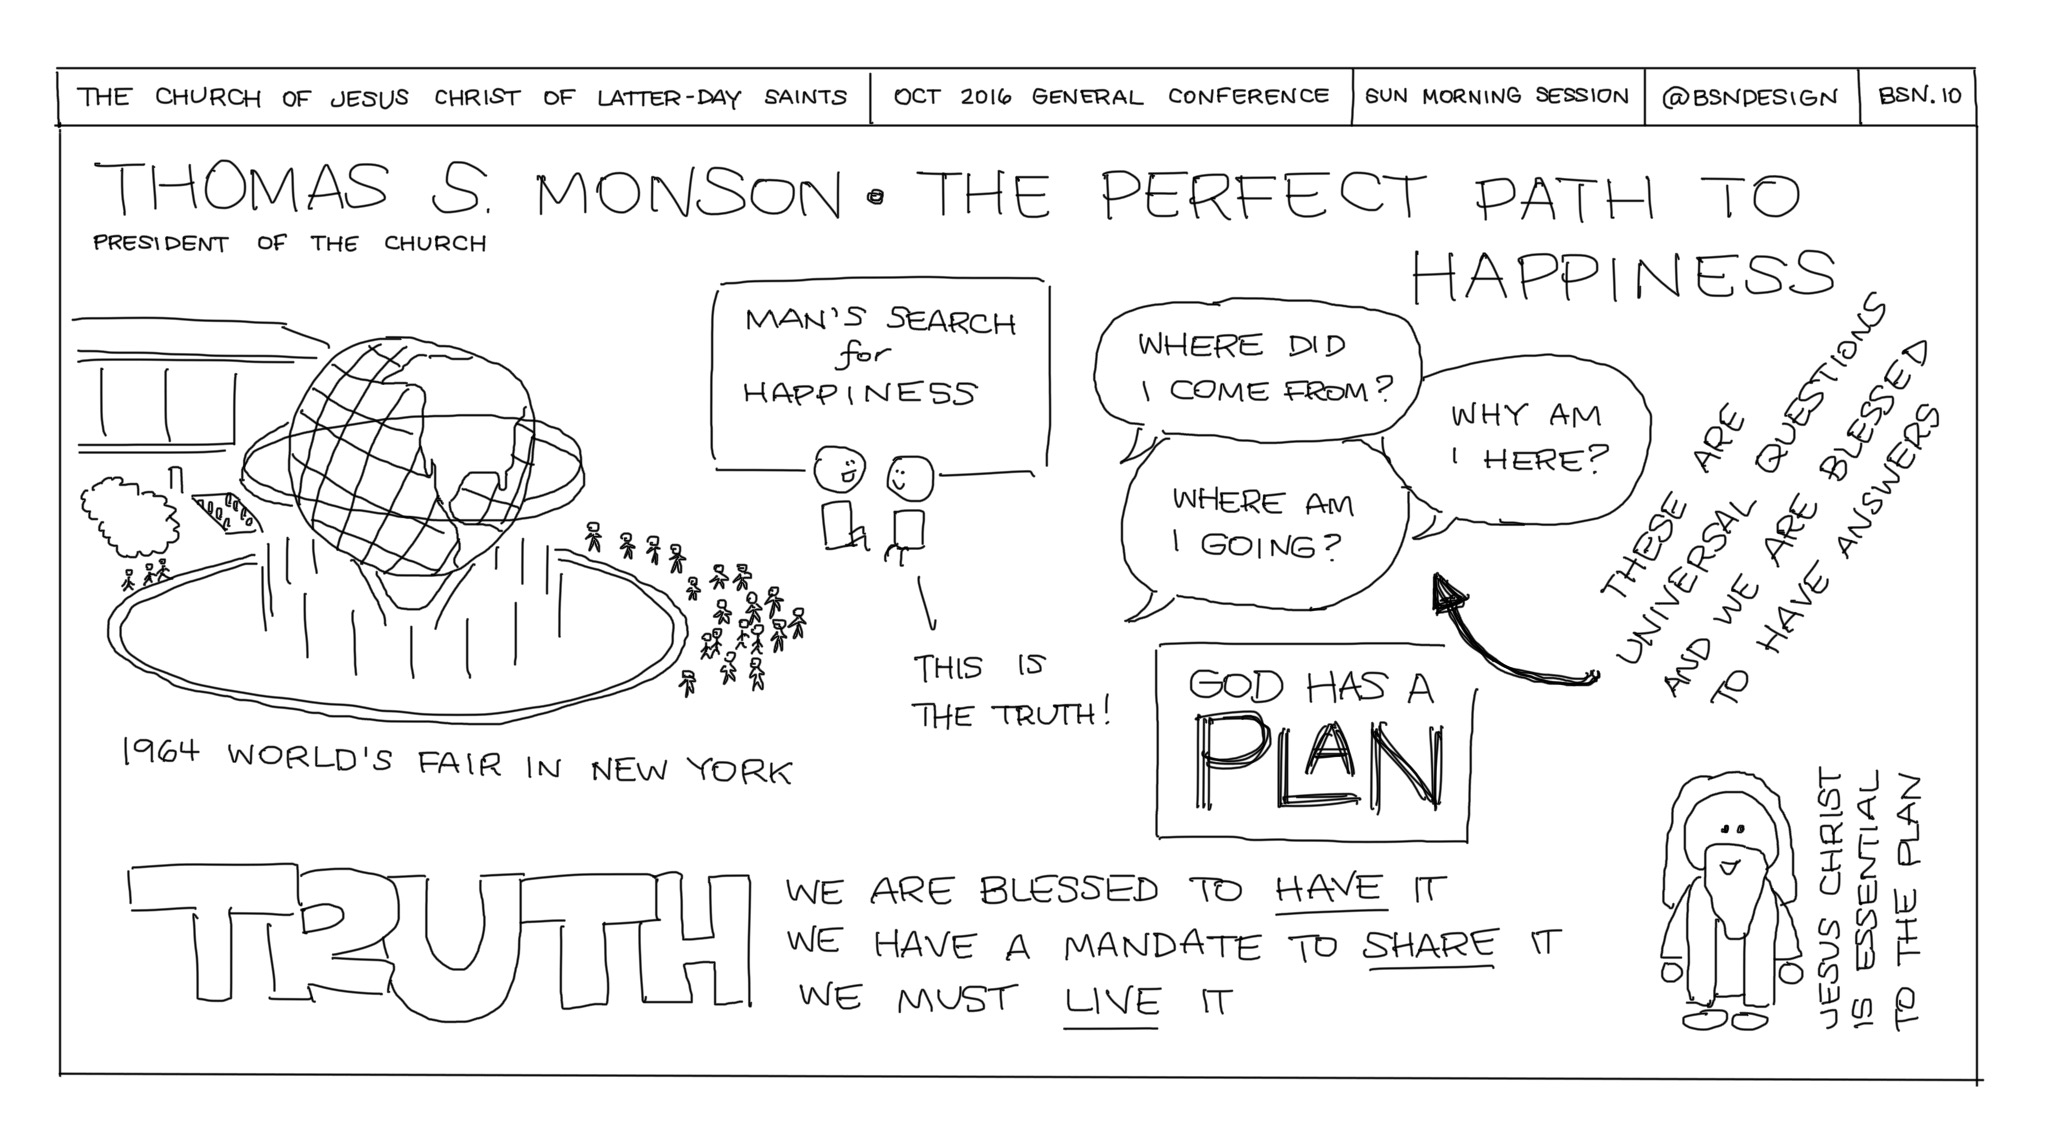 THE CHURCH OF JESUS CHRIST OF LATTER-DAY SAINTS
OCT 2016 GENERAL CONFERENCE
SUN MORNING SESSION
@BSNDESIGN
BSN.10
THOMAS S. MONSON • THE PERFECT PATH TO
HAPPINESS
PRESIDENT OF THE CHURCH
MAN'S SEARCH
for
HAPPINESS
WHERE DID
I COME FROM?
WHY AM
I HERE?
WHERE AM
I GOING?
THESE ARE
UNIVERSAL QUESTIONS
AND WE ARE BLESSED
TO HAVE ANSWERS
THIS IS
THE TRUTH!
GOD HAS A
PLAN
1964 WORLD'S FAIR IN NEW YORK
TRUTH
WE ARE BLESSED TO HAVE IT
WE HAVE A MANDATE TO SHARE IT
WE MUST LIVE IT
JESUS CHRIST
IS ESSENTIAL
TO THE PLAN